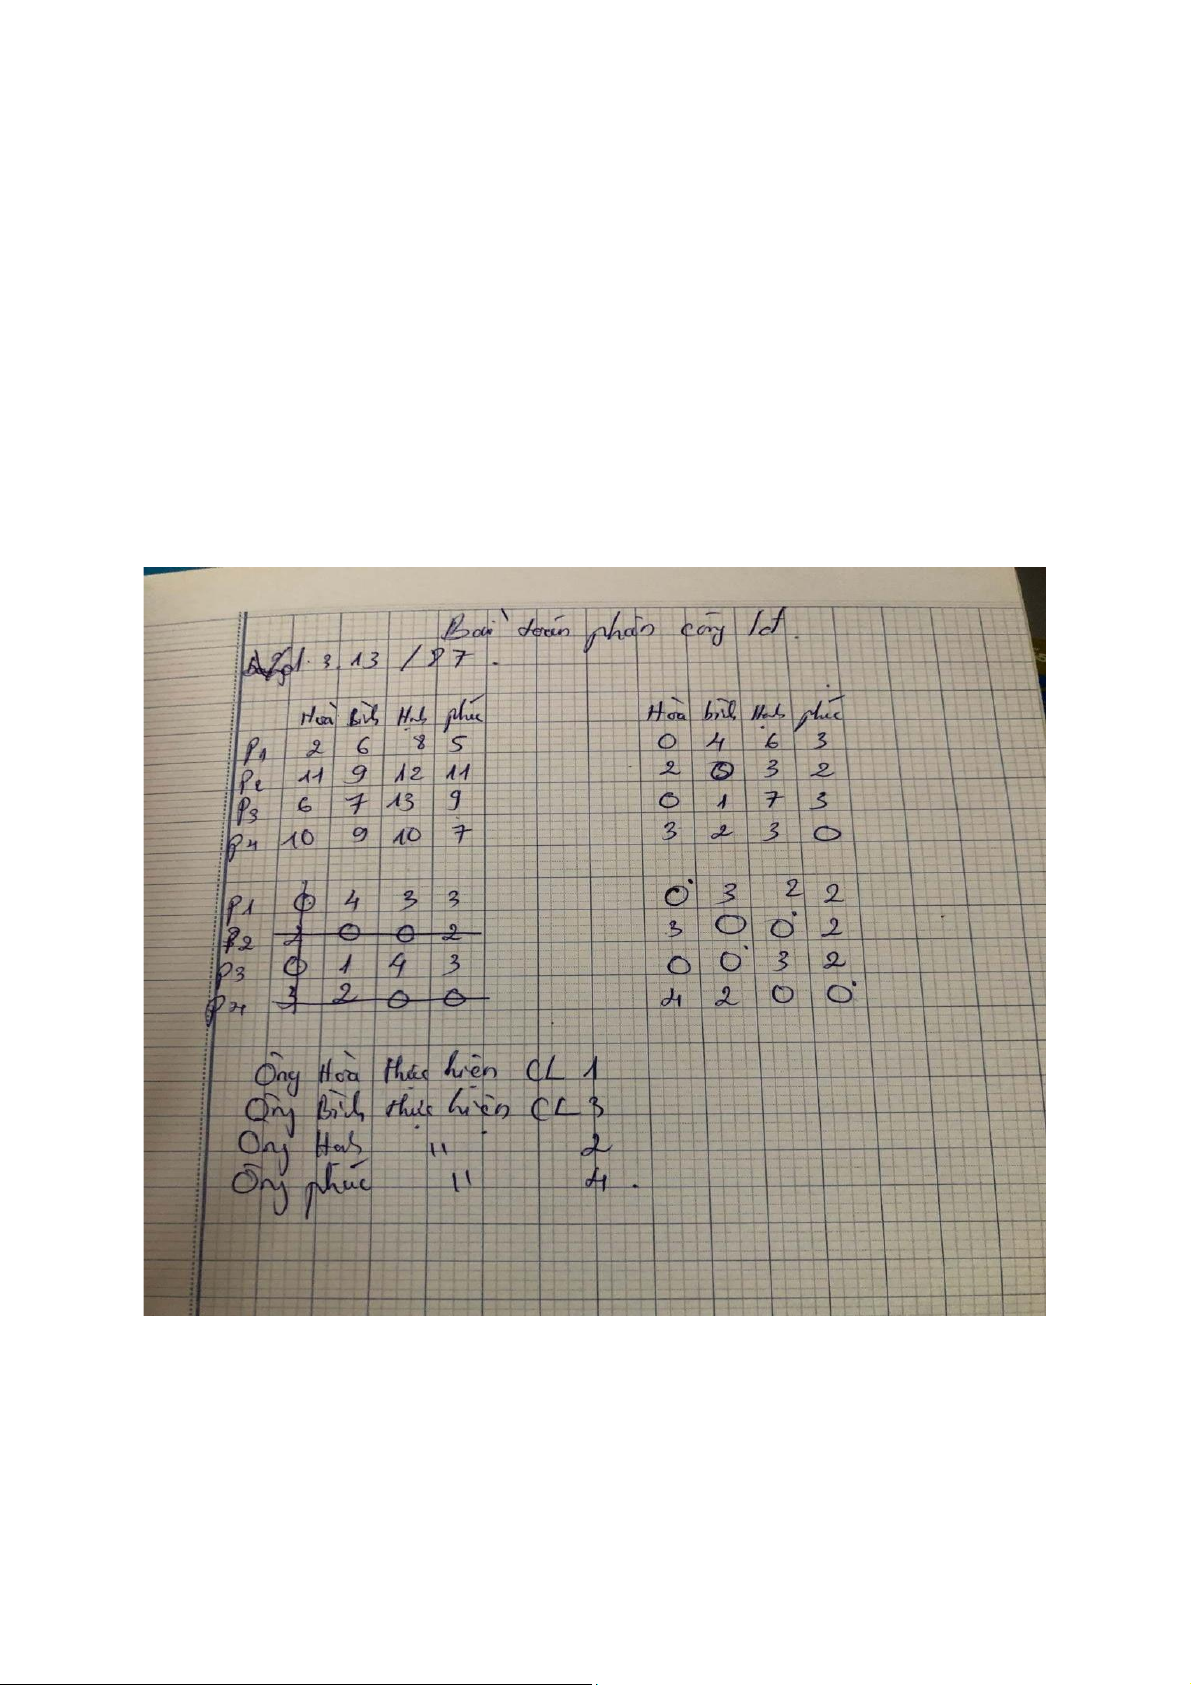 Bài toán phân công lđ.
3.13 / 87.
Hoà Bình Hạnh phúc
P1 2 6 8 5
P2 11 9 12 11
P3 6 7 13 9
P4 10 9 10 7
Hoà bình Hạnh phúc
0 4 6 3
2 0 3 2
0 1 7 3
3 2 3 0
P1 0 4 3 3
P2 2 0 0 2
P3 0 1 4 3
P4 3 2 0 0
0 3 2 2
3 0 0 2
0 0 3 2
4 2 0 0
Ông Hoà thực hiện CL 1
Ông Bình thực hiện CL 3
Ông Hạnh " 2
Ông phúc " 4.